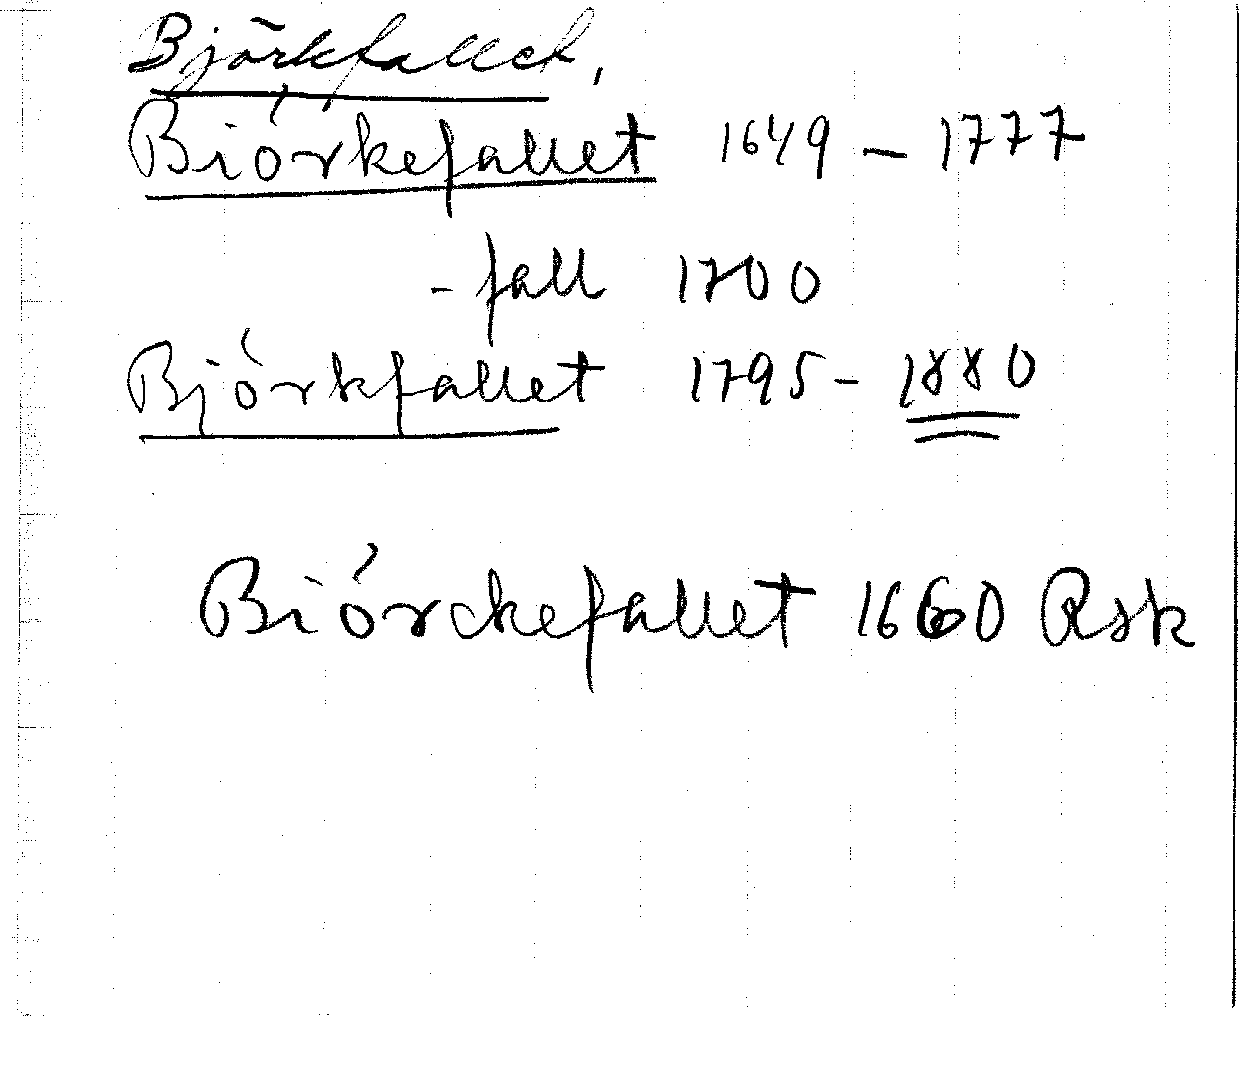 Björkfallet,
Biörkefallet 1649 - 1777
- fall 1700
Björkfallet 1795 - 1880
Biörckefallet 1660 Rsk